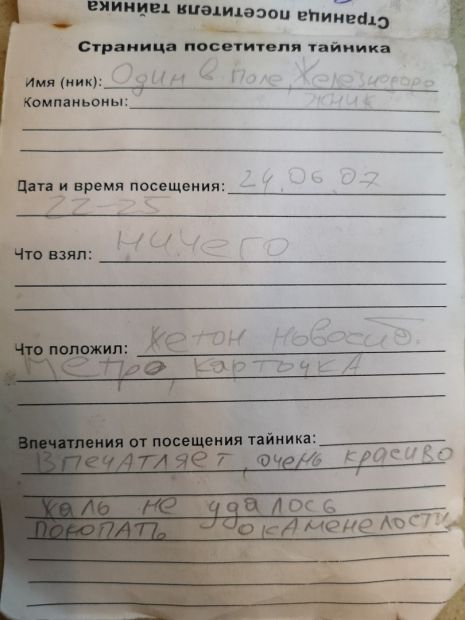 Страница посетителя тайника
Страница посетителя тайника
Имя (ник): Один в поле, Железнодоро
Компаньоны: жник
Дата и время посещения: 24.06.07
22-25
Что взял: НИЧЕГО
Что положил: жетон новосиб.
Метро, карточка
Впечатления от посещения тайника:
Впечатляет, очень красиво
жаль не удалось
покопать окаменелости